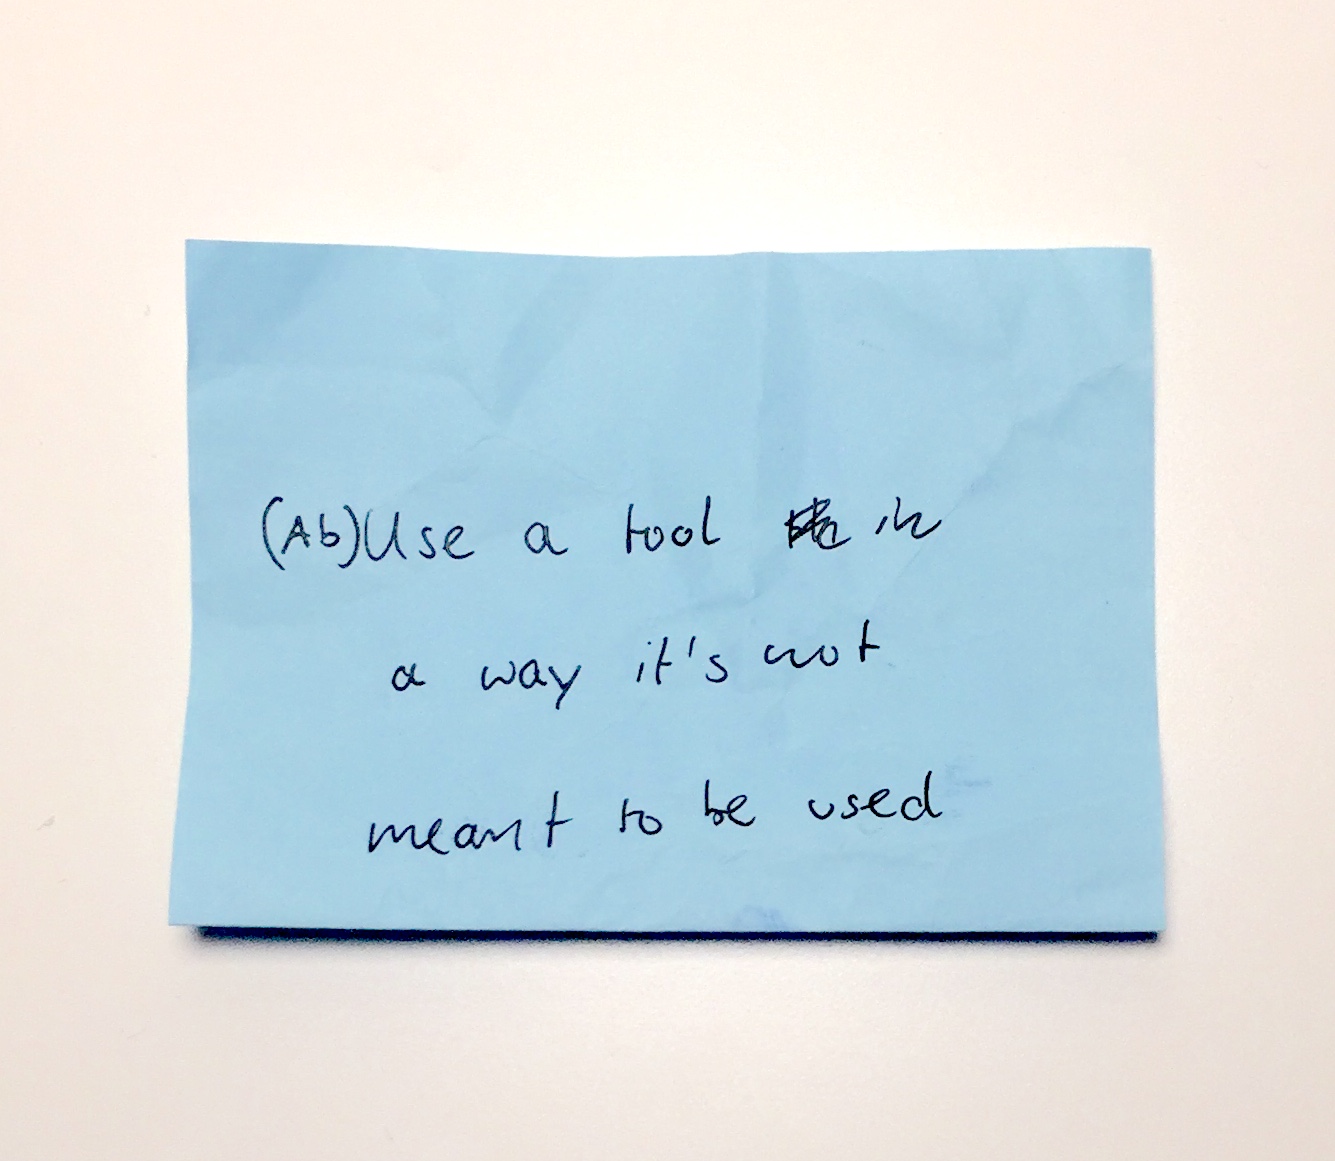 (Ab)Use a tool in
a way it's not
meant to be used